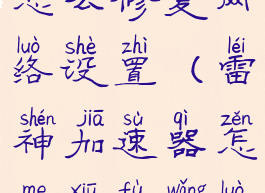 怎么修复网
luò shè zhì léi
络设置（雷
shén jiā sù qì zěn
神加速器怎
me xiū fù wǎng luò